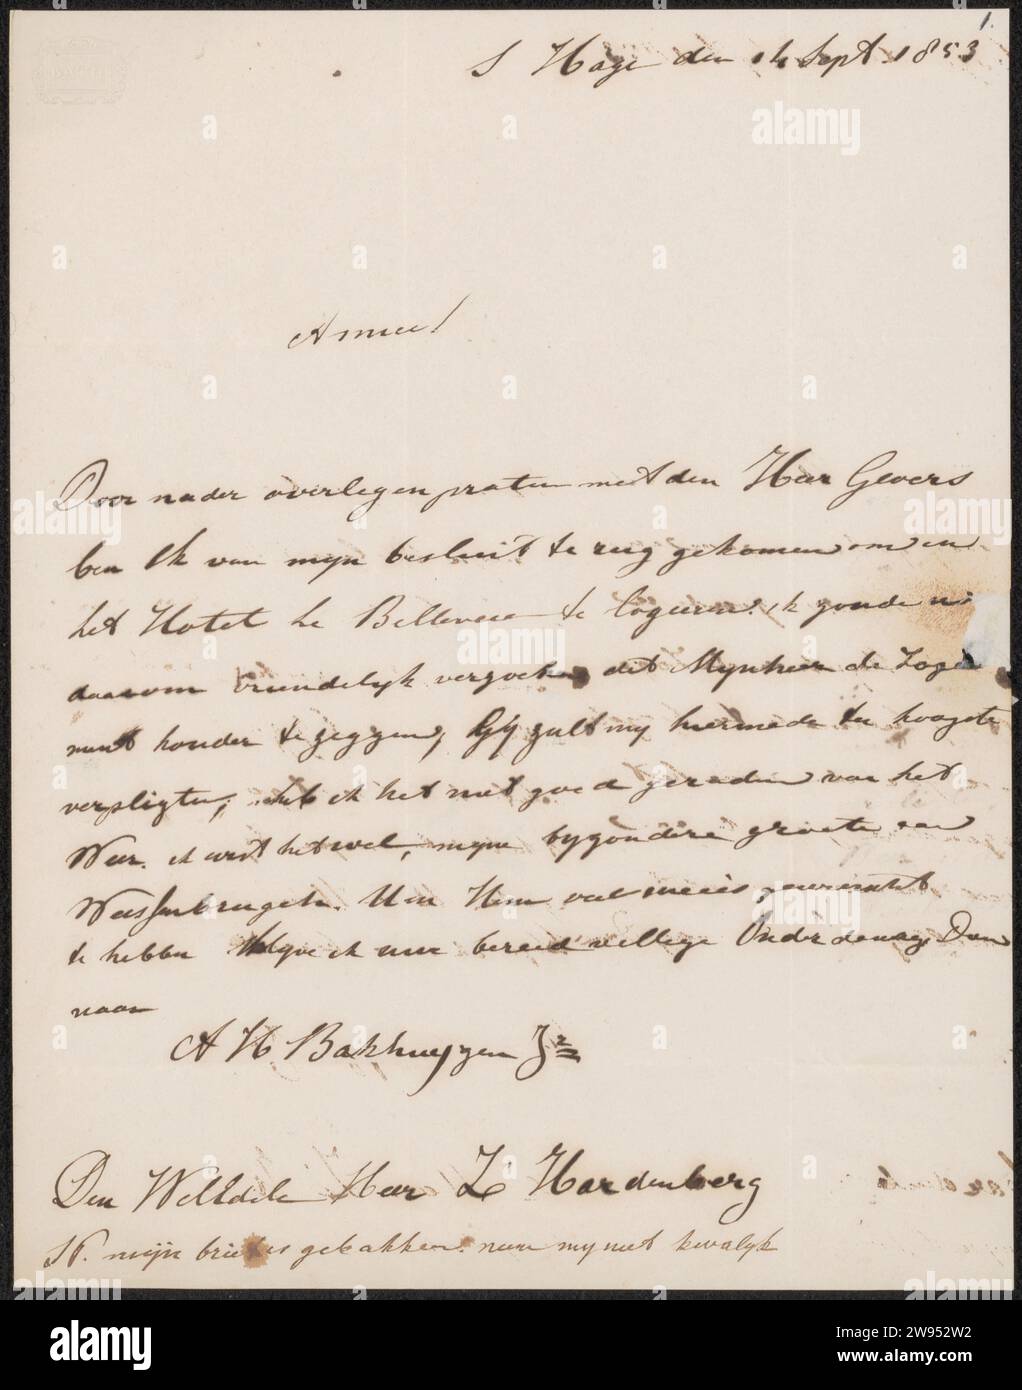 1.
S Hage den 14 Sept. 1853
Amice!
Door nader overlegen praten met den Heer Gevers
ben Ik van mijn besluit te rug gekomen om in
het Hotel le Bellevue te logeeren. ik zoude u
daarom vriendelyk verzoeken dit Mynheer de
munt honder te zeggen, Gij zult my hiermede ten hoogste
verpligten, heb ik het niet goed geraden van het
Weer. ik wist het wel, mijne byzondere groete aan
Weissenbrugh. Uwe Hem veel
te hebben ik uwe bereidwillige Onderdenaar Dien
naar
A H Bakhuyzen Zn
Den WelEdele Heer L Hardenberg
NP. mijn brief is gebakken. neem my niet kwalyk
alamy
Image ID: 2W952W2
www.alamy.com